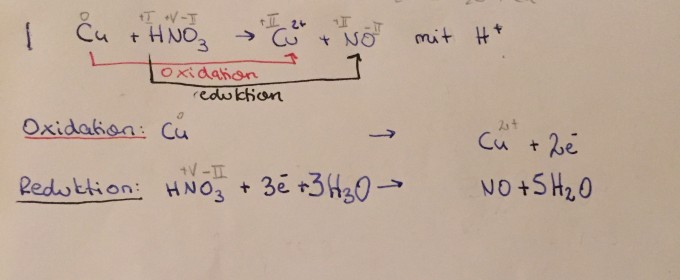 1 Cu⁰ + H⁺ᴵN⁺ⱽO₃⁻ᴵᴵ → Cu²⁺ ⁺ᴵᴵ + N⁺ᴵᴵO⁻ᴵᴵ mit H⁺
Oxidation
reduktion
Oxidation: Cu⁰ → Cu²⁺ + 2e⁻
Reduktion: HN⁺ⱽO₃⁻ᴵᴵ + 3e⁻ + 3H₃O → NO + 5H₂O